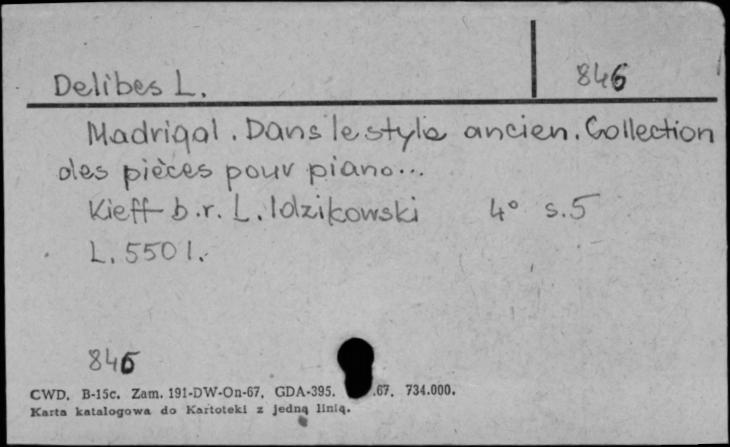 Delibes L. 846
Madrigal. Dans le style ancien. Collection
des pièces pour piano...
Kieff b.r. L. Idzikowski 4° s.5
L. 550 I.
846
CWD. B-15c. Zam. 191-DW-On-67. GDA-395. .67. 734.000.
Karta katalogowa do Kartoteki z jedną linią.